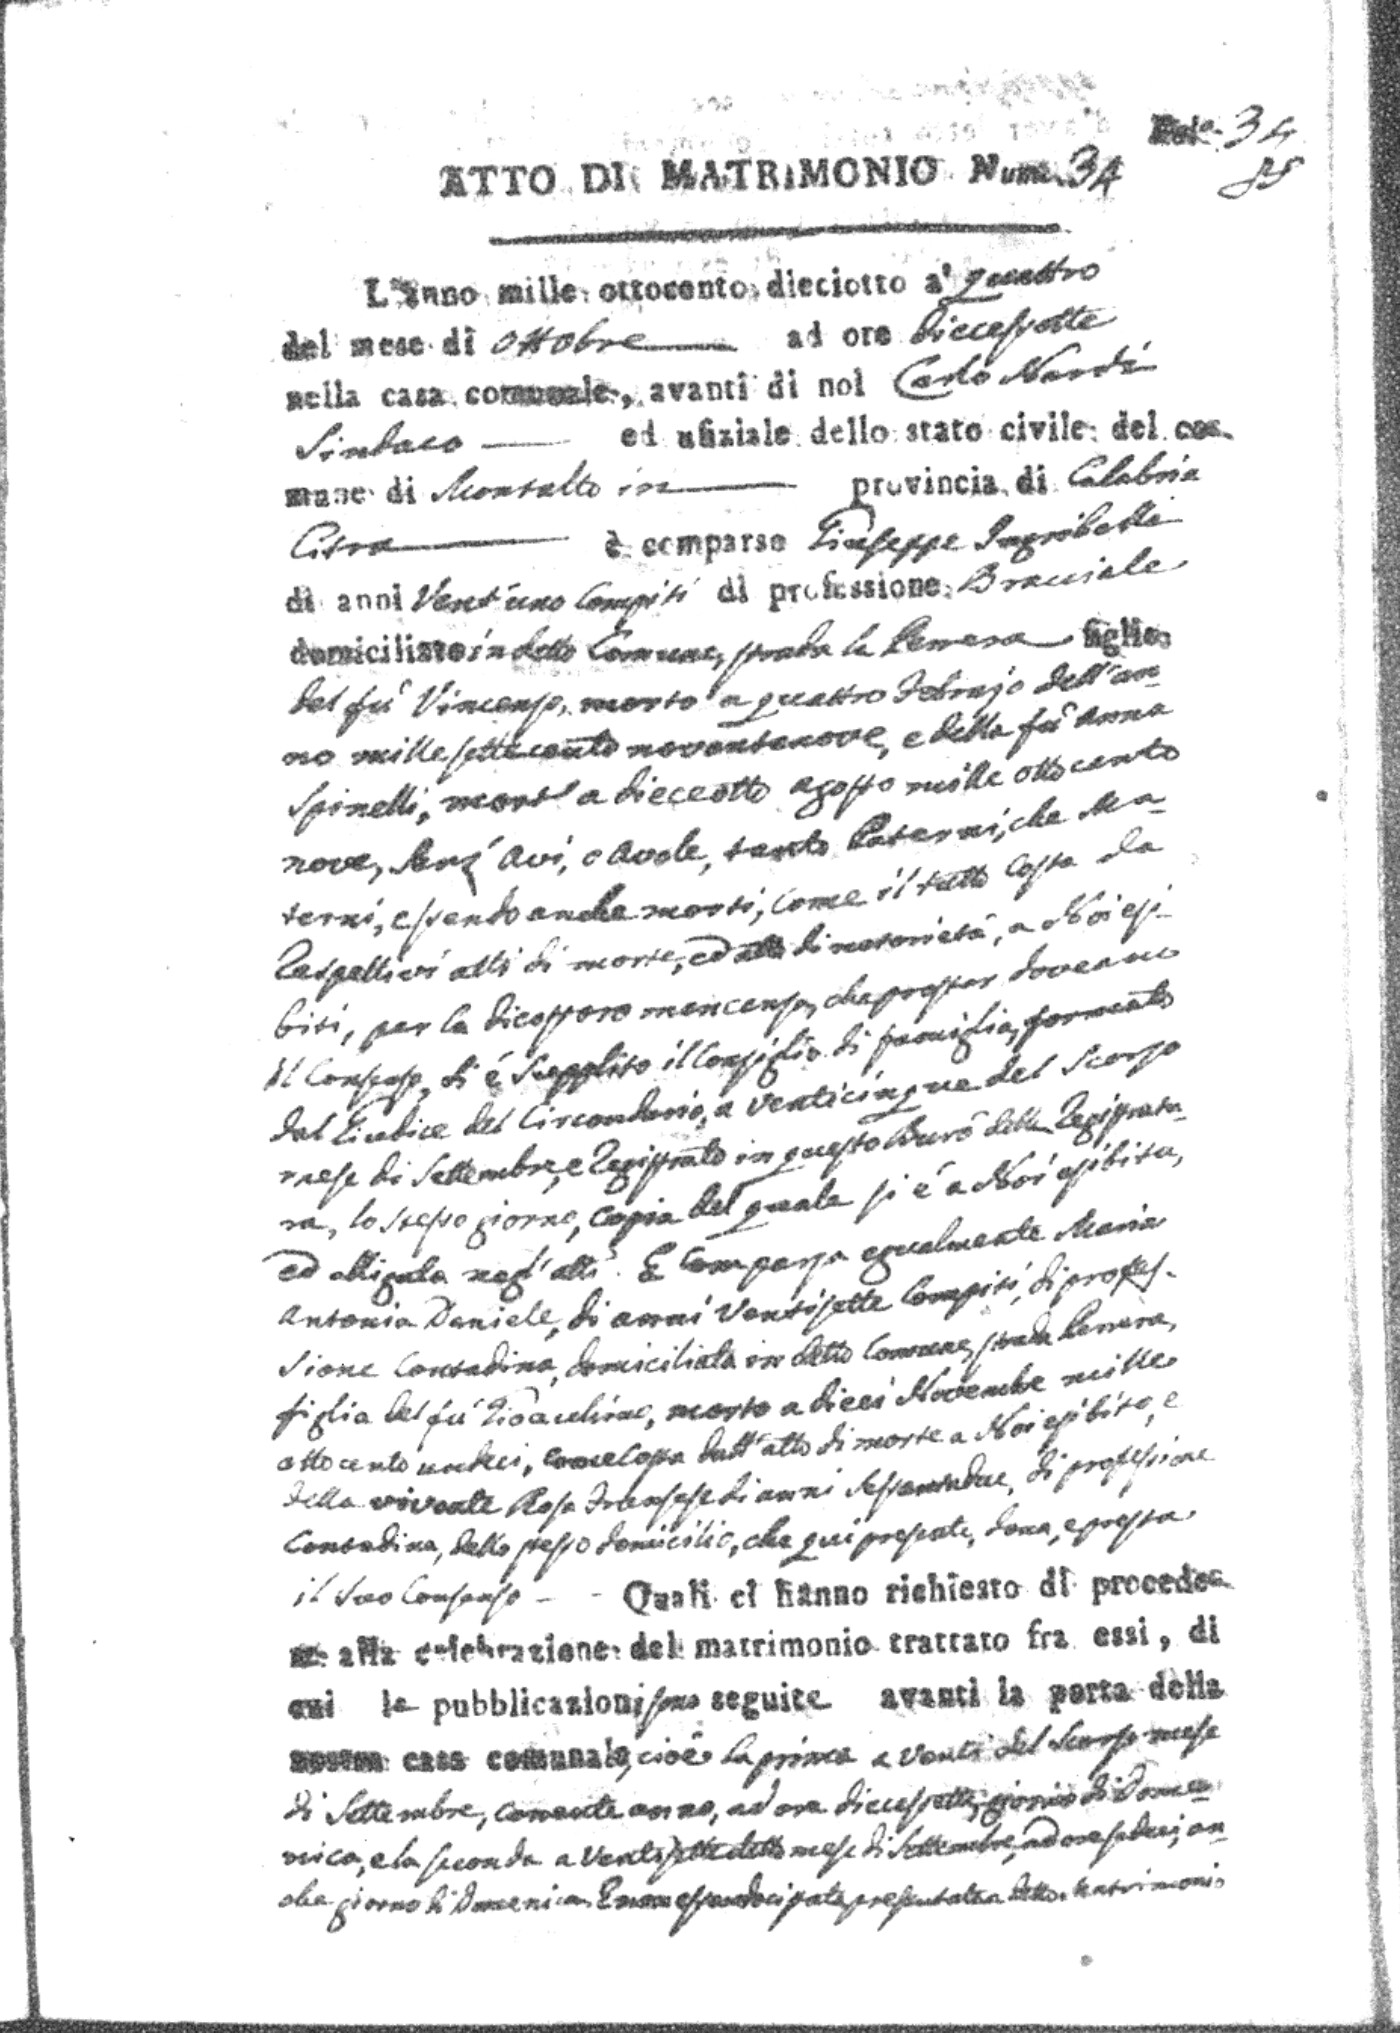 Fol.º 34
85
ATTO DI MATRIMONIO Num. 34
L'anno mille ottocento dieciotto a' quattro
del mese di Ottobre ad ore diecessette
nella casa comunale, avanti di noi Carlo Nardi
Sindaco ed ufiziale dello stato civile del co-
mune di Montalto in provincia di Calabria
Citra è comparso Giuseppe
di anni Vent'uno Compiti di professione Bracciale
domiciliato in detto Comune, strada la Perrera figlio
del fù Vincenzo, morto a quattro Febrajo dell'an-
no mille settecento novantanove, e della fù Anna
Spinelli, mortª a dieceotto agosto mille ottocento
nove, senz' Avi, o Avole, tanto Paterni, che Ma-
terni, essendo anche morti, come il tutto costa da
Respettivi atti di morte, ed atto di notorietà, a Noi esi-
biti, per la di essoro mancanza, che prestar doveano
il Consenso, si é Supplito il Consiglio di famiglia, formato
dal Giudice del Circondario, a venticinque del Scorso
mese di Settembre, e Registrato in questo Burò della Registratu-
ra, lo stesso giorno, copia del quale si é a Noi esibita,
ed alligata negl'atti. E Comparsa egualmente Maria
Antonia Daniele, di anni Ventisette Compiti, di profes-
sione Contadina, domiciliata in detto Comune, strada Perrera,
figlia del fù Gioacchino, morto a dieci Novembre mille
ottocento undeci, come costa dall'atto di morte a Noi esibito, e
della vivente Rosa Franzese di anni Sessantadue, di professione
Contadina, dello stesso domicilio, che qui presente, dona, e presta
il suo Consenso - - Quali ci hanno richiesto di procede-
re alla celebrazione del matrimonio trattato fra essi, di
cui le pubblicazioni sono seguite avanti la porta della
nostra casa comunale, cioè la prima a venti del Scorso mese
di Settembre, corrente anno, ad ore diecessette, giorno di Dome-
nica, e la seconda a ventisette detto mese di Settembre, ad ore sedeci, an-
che giorno di Domenica. E non essendoci stata presentata a detto matrimonio